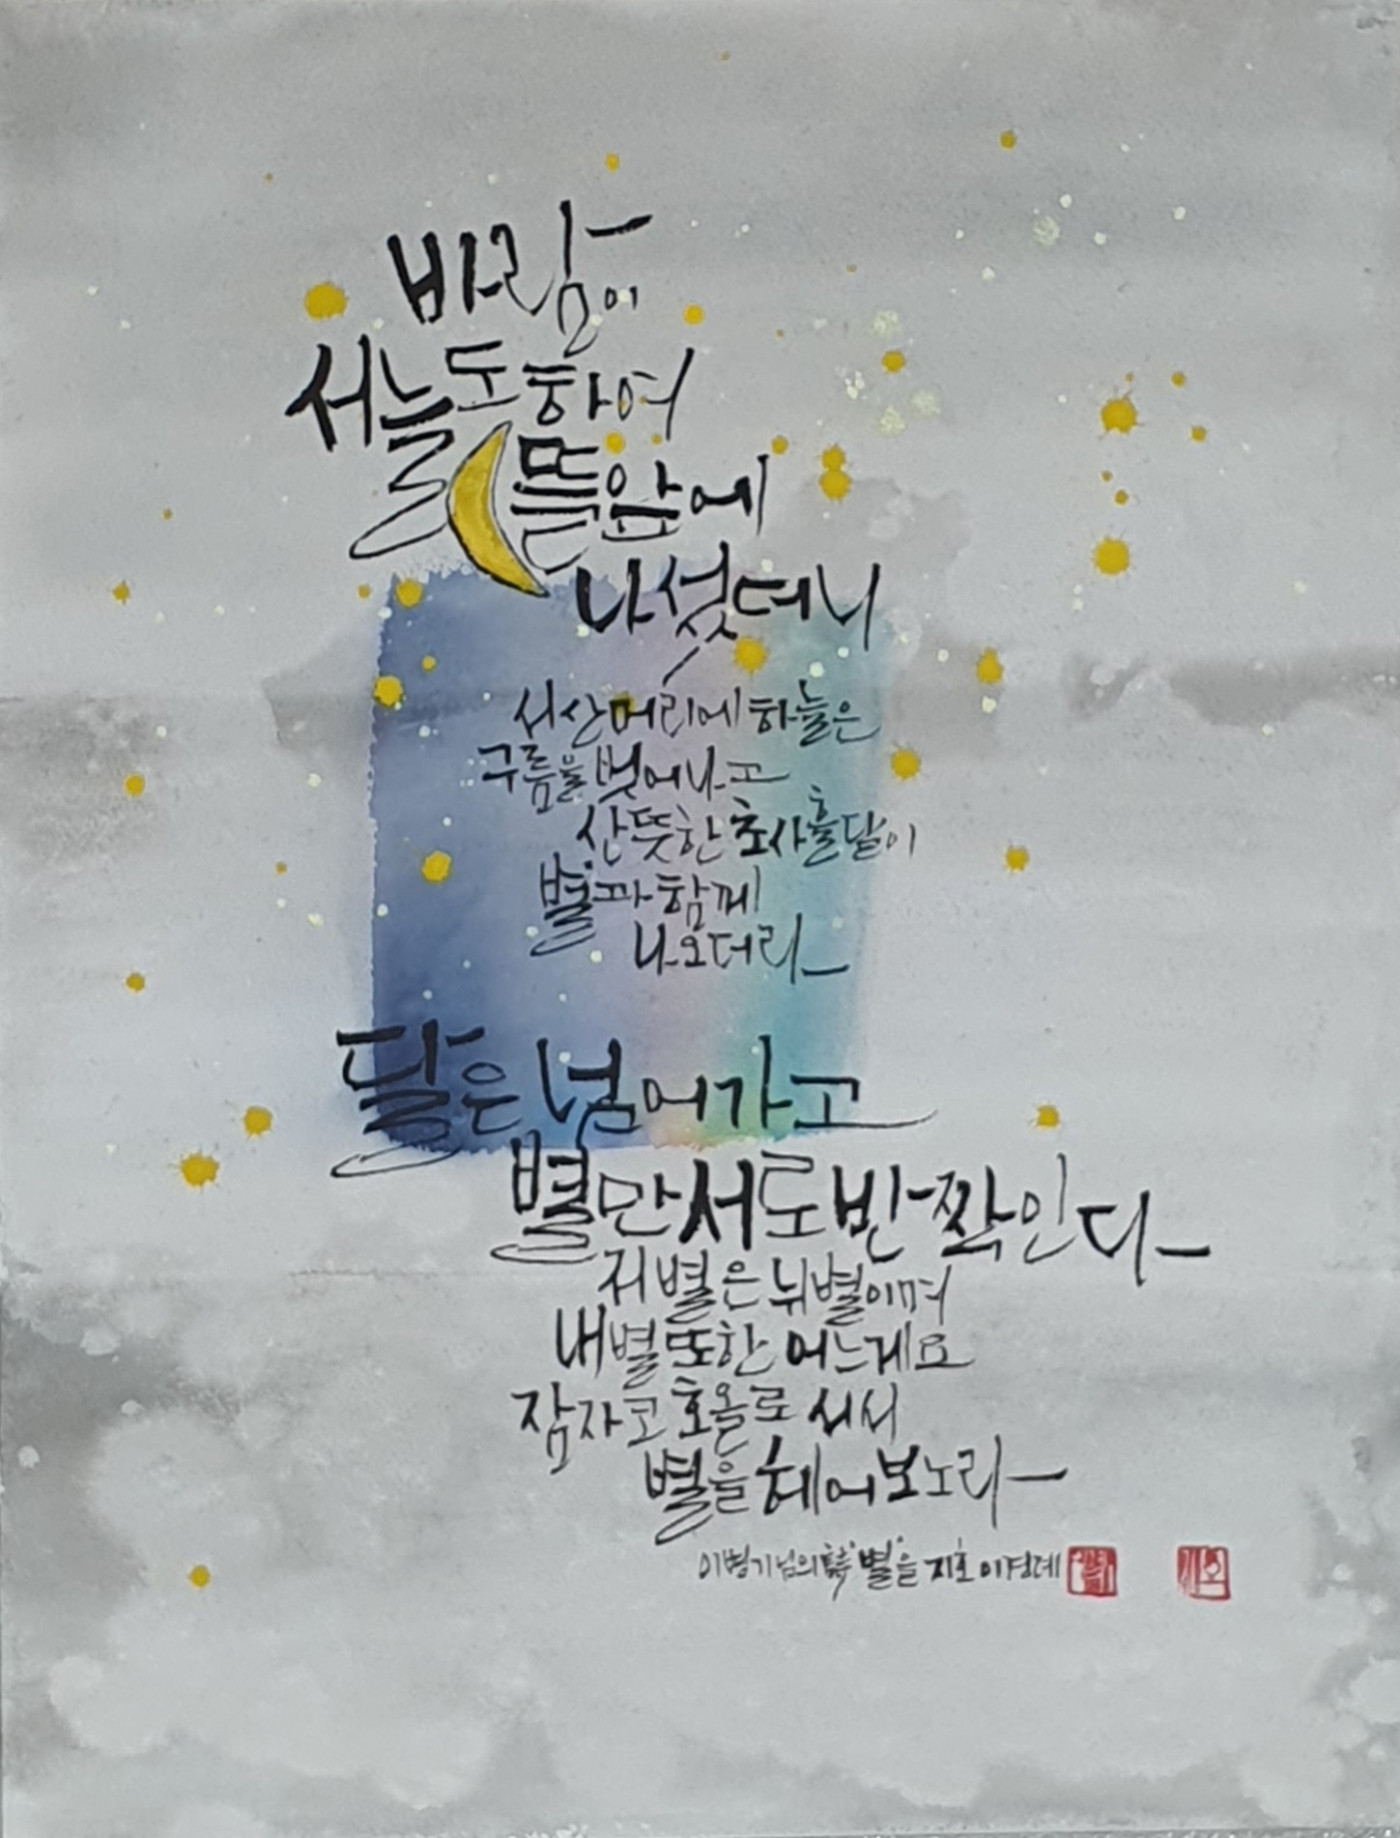 바람이
서늘도하여
뜰앞에
나섰더니
서산머리에 하늘은
구름을 벗어나고
산뜻한 초사흘달이
별과 함께
나오더라
달은 넘어가고
별만 서로 반짝인다
저 별은 뉘 별이며
내 별 또한 어느게요
잠자코 호올로 서서
별을 헤어보노라
이병기님의 詩 "별"을 지호 이경례